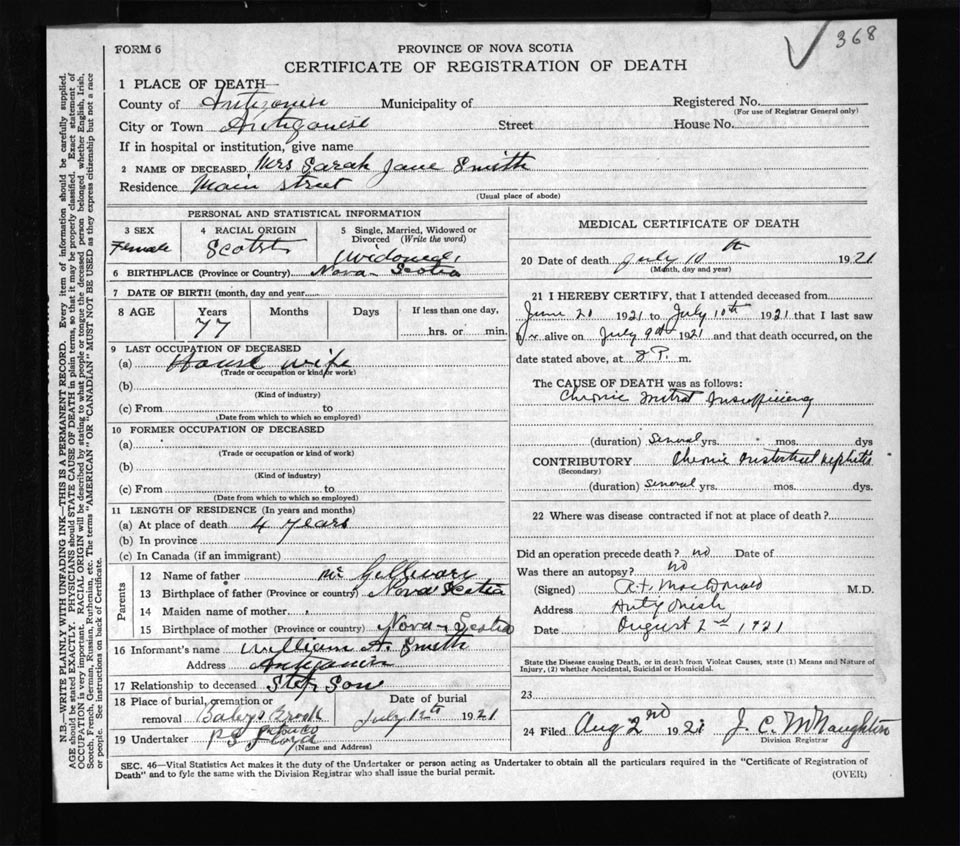 368
FORM 6
PROVINCE OF NOVA SCOTIA
CERTIFICATE OF REGISTRATION OF DEATH
1 PLACE OF DEATH
County of Municipality of Registered No.
(For use of Registrar General only)
City or Town Street House No.
If in hospital or institution, give name
2 NAME OF DECEASED Mrs Sarah Jane Smith
Residence Main street
(Usual place of abode)
PERSONAL AND STATISTICAL INFORMATION
3 SEX 4 RACIAL ORIGIN 5 Single, Married, Widowed or Divorced (Write the word)
Female Scotch Widowed
6 BIRTHPLACE (Province or Country) Nova-Scotia
7 DATE OF BIRTH (month, day and year
8 AGE Years Months Days If less than one day,
77 hrs. or min.
9 LAST OCCUPATION OF DECEASED
(a) House wife
(Trade or occupation or kind or work)
(b)
(Kind of industry)
(c) From to
(Date from which to which so employed)
10 FORMER OCCUPATION OF DECEASED
(a)
(Trade or occupation or kind of work)
(b)
(Kind of industry)
(c) From to
(Date from which to which so employed)
11 LENGTH OF RESIDENCE (In years and months)
(a) At place of death 4 years
(b) In province
(c) In Canada (if an immigrant)
Parents
12 Name of father Mc
13 Birthplace of father (Province or country) Nova Scotia
14 Maiden name of mother
15 Birthplace of mother (Province or country) Nova-Scotia
16 Informant's name William A. Smith
Address
17 Relationship to deceased Step Son
18 Place of burial, cremation or removal Date of burial
Brook July 12th 1921
19 Undertaker
(Name and Address)
MEDICAL CERTIFICATE OF DEATH
20 Date of death July 10th 1921
(Month, day and year)
21 I HEREBY CERTIFY, that I attended deceased from
June 21 1921 to July 10th 1921 that I last saw
alive on July 9th 1921 and that death occurred, on the
date stated above, at P. m.
The CAUSE OF DEATH was as follows:
Chronic Mitral Insufficiency
(duration) Several yrs. mos. dys
CONTRIBUTORY Chronic Nephritis
(Secondary)
(duration) Several yrs. mos. dys.
22 Where was disease contracted if not at place of death?
Did an operation precede death? no Date of
Was there an autopsy? no
(Signed) MacDonald M.D.
Address Antigonish
Date August 2nd 1921
State the Disease causing Death, or in death from Violent Causes, state (1) Means and Nature of
Injury, (2) whether Accidental, Suicidal or Homicidal.
23
24 Filed Aug 2nd 1921 J. C. McNaughton
Division Registrar
SEC. 46—Vital Statistics Act makes it the duty of the Undertaker or person acting as Undertaker to obtain all the particulars required in the "Certificate of Registration of
Death" and to fyle the same with the Division Registrar who shall issue the burial permit.
(OVER)
N.B.—WRITE PLAINLY WITH UNFADING INK—THIS IS A PERMANENT RECORD. Every item of information should be carefully supplied.
AGE should be stated EXACTLY. PHYSICIANS should STATE CAUSE OF DEATH in plain terms, so that it may be properly classified. Exact statement of
OCCUPATION is very important. RACIAL ORIGIN will be described by stating to what people or tongue the deceased person belonged whether English, Irish,
Scotch, French, German, Russian, Ruthenian, etc. The terms "AMERICAN" OR "CANADIAN" MUST NOT BE USED as they express citizenship but not a race
or people. See instructions on back of Certificate.